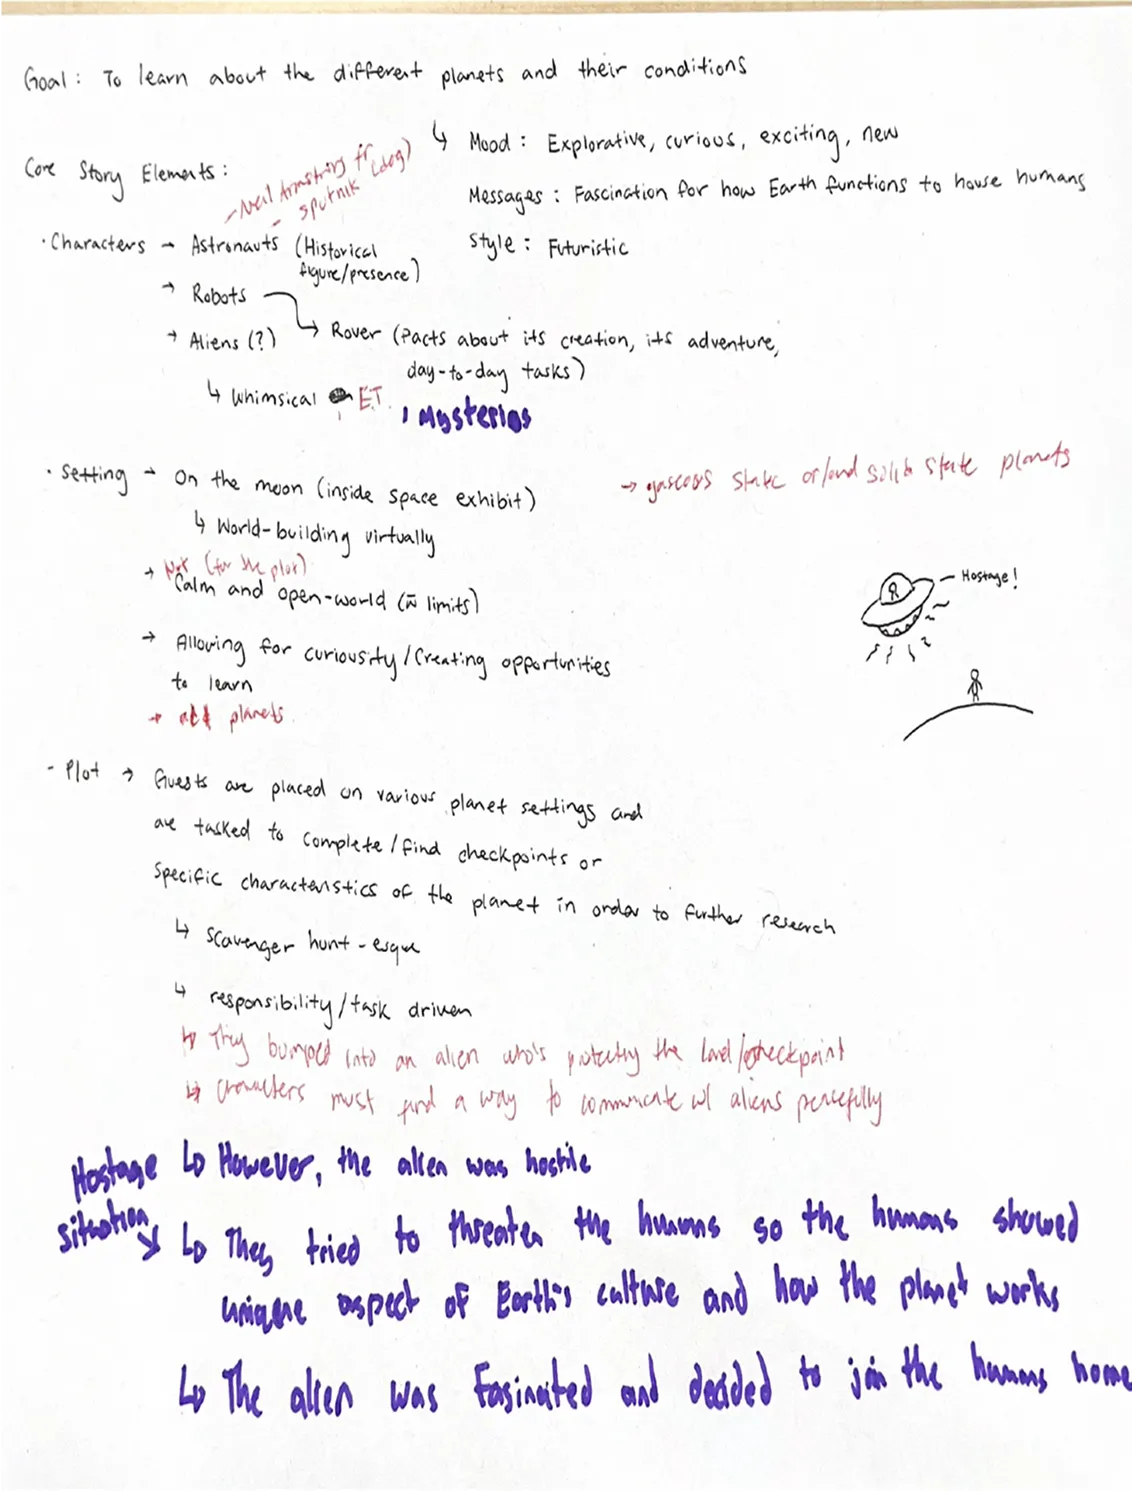 Goal: To learn about the different planets and their conditions
↳ Mood: Explorative, curious, exciting, new
Messages: Fascination for how Earth functions to house humans
Style: Futuristic
Core Story Elements:
- Neil Armstrong fr
- Sputnik (dog)
· Characters → Astronauts (Historical
figure/presence)
→ Robots
↳ Rover (Facts about its creation, its adventure,
day-to-day tasks)
→ Aliens (?)
↳ Whimsical E.T.
, Mysterios
· Setting → On the moon (inside space exhibit)
→ gaseous state or/and solid state planets
↳ World-building virtually
Not (for the plot)
→ Calm and open-world (w̄ limits)
→ Allowing for curiousity/Creating opportunities
to learn
→ add planets
Hostage!
- Plot → Guests are placed on various planet settings and
are tasked to complete/find checkpoints or
specific characteristics of the planet in order to further research
↳ Scavenger hunt-esque
↳ responsibility/task driven
↳ They bumped into an alien who's protecting the land/checkpoint
↳ characters must find a way to communicate w/ aliens peacefully
Hostage
situation
↳ However, the alien was hostile
↳ They tried to threaten the humans so the humans showed
unique aspect of Earth's culture and how the planet works
↳ The alien was Fasinated and decided to join the humans home